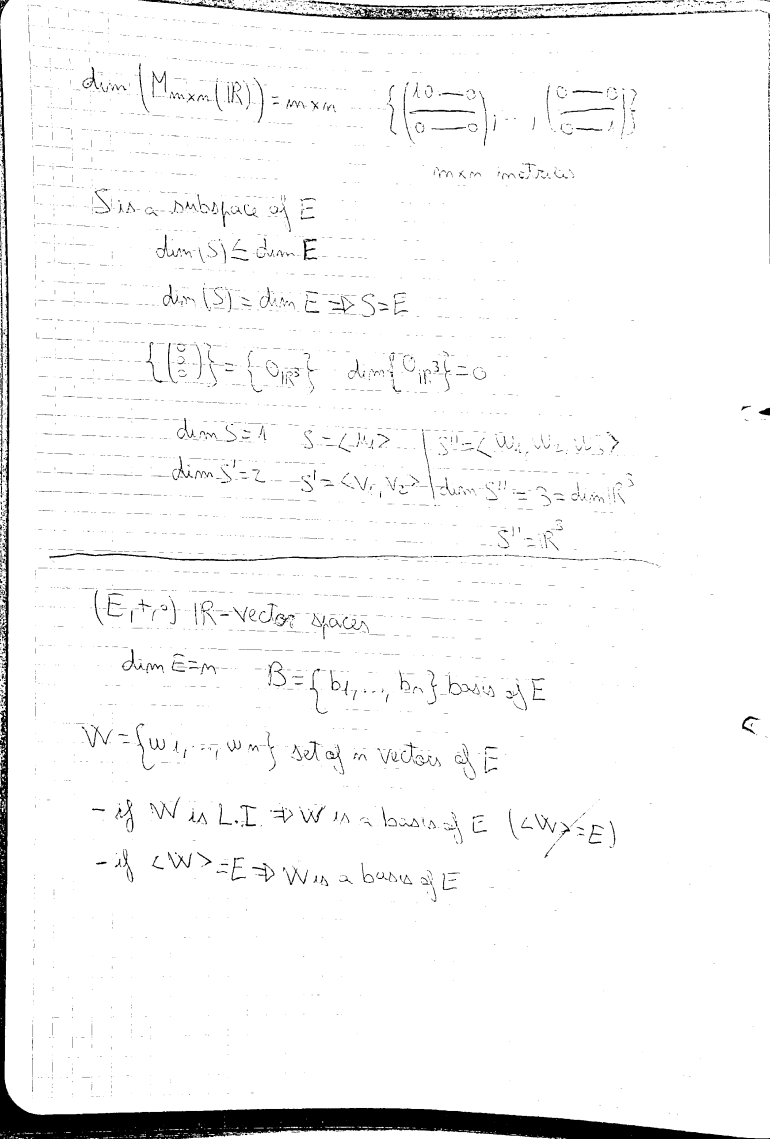 dim (M_{m×n}(ℝ)) = m×n {(1 0 — 0 / 0 — 0), ..., (0 — 0 / 0 — 1)}
m×n matrices
S is a subspace of E
dim(S) ≤ dim E
dim(S) = dim E ⇒ S=E
{(0 0 0)} = {0_{ℝ³}} dim{0_{ℝ³}} = 0
dim S=1 S=<u₁> | S''=<w₁, w₂, w₃>
dim S'=2 S'=<v₁, v₂> | dim S'' = 3 = dim ℝ³
S''=ℝ³
(E,+,·) ℝ-vector spaces
dim E=n B={b₁,..., bₙ} basis of E
W={w₁,..., wₙ} set of n vectors of E
- if W is L.I. ⇒ W is a basis of E (<W>=E)
- if <W>=E ⇒ W is a basis of E